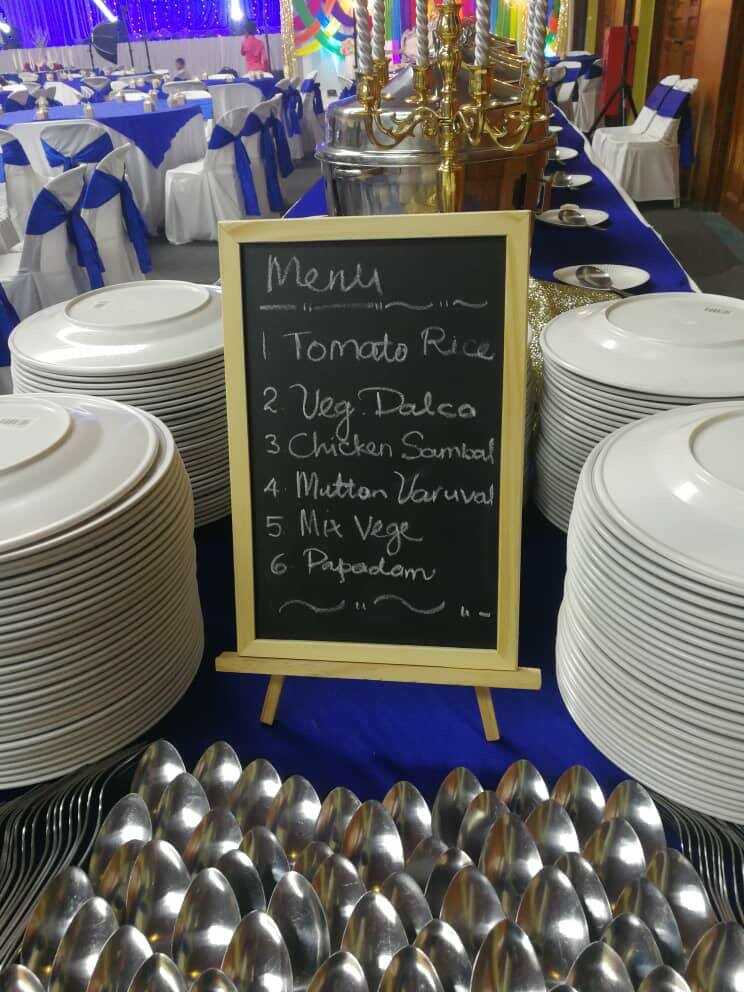 Menu
1 Tomato Rice
2. Veg. Dalca
3 Chicken Sambal
4. Mutton Varuval
5. Mix Vege
6 Papadam